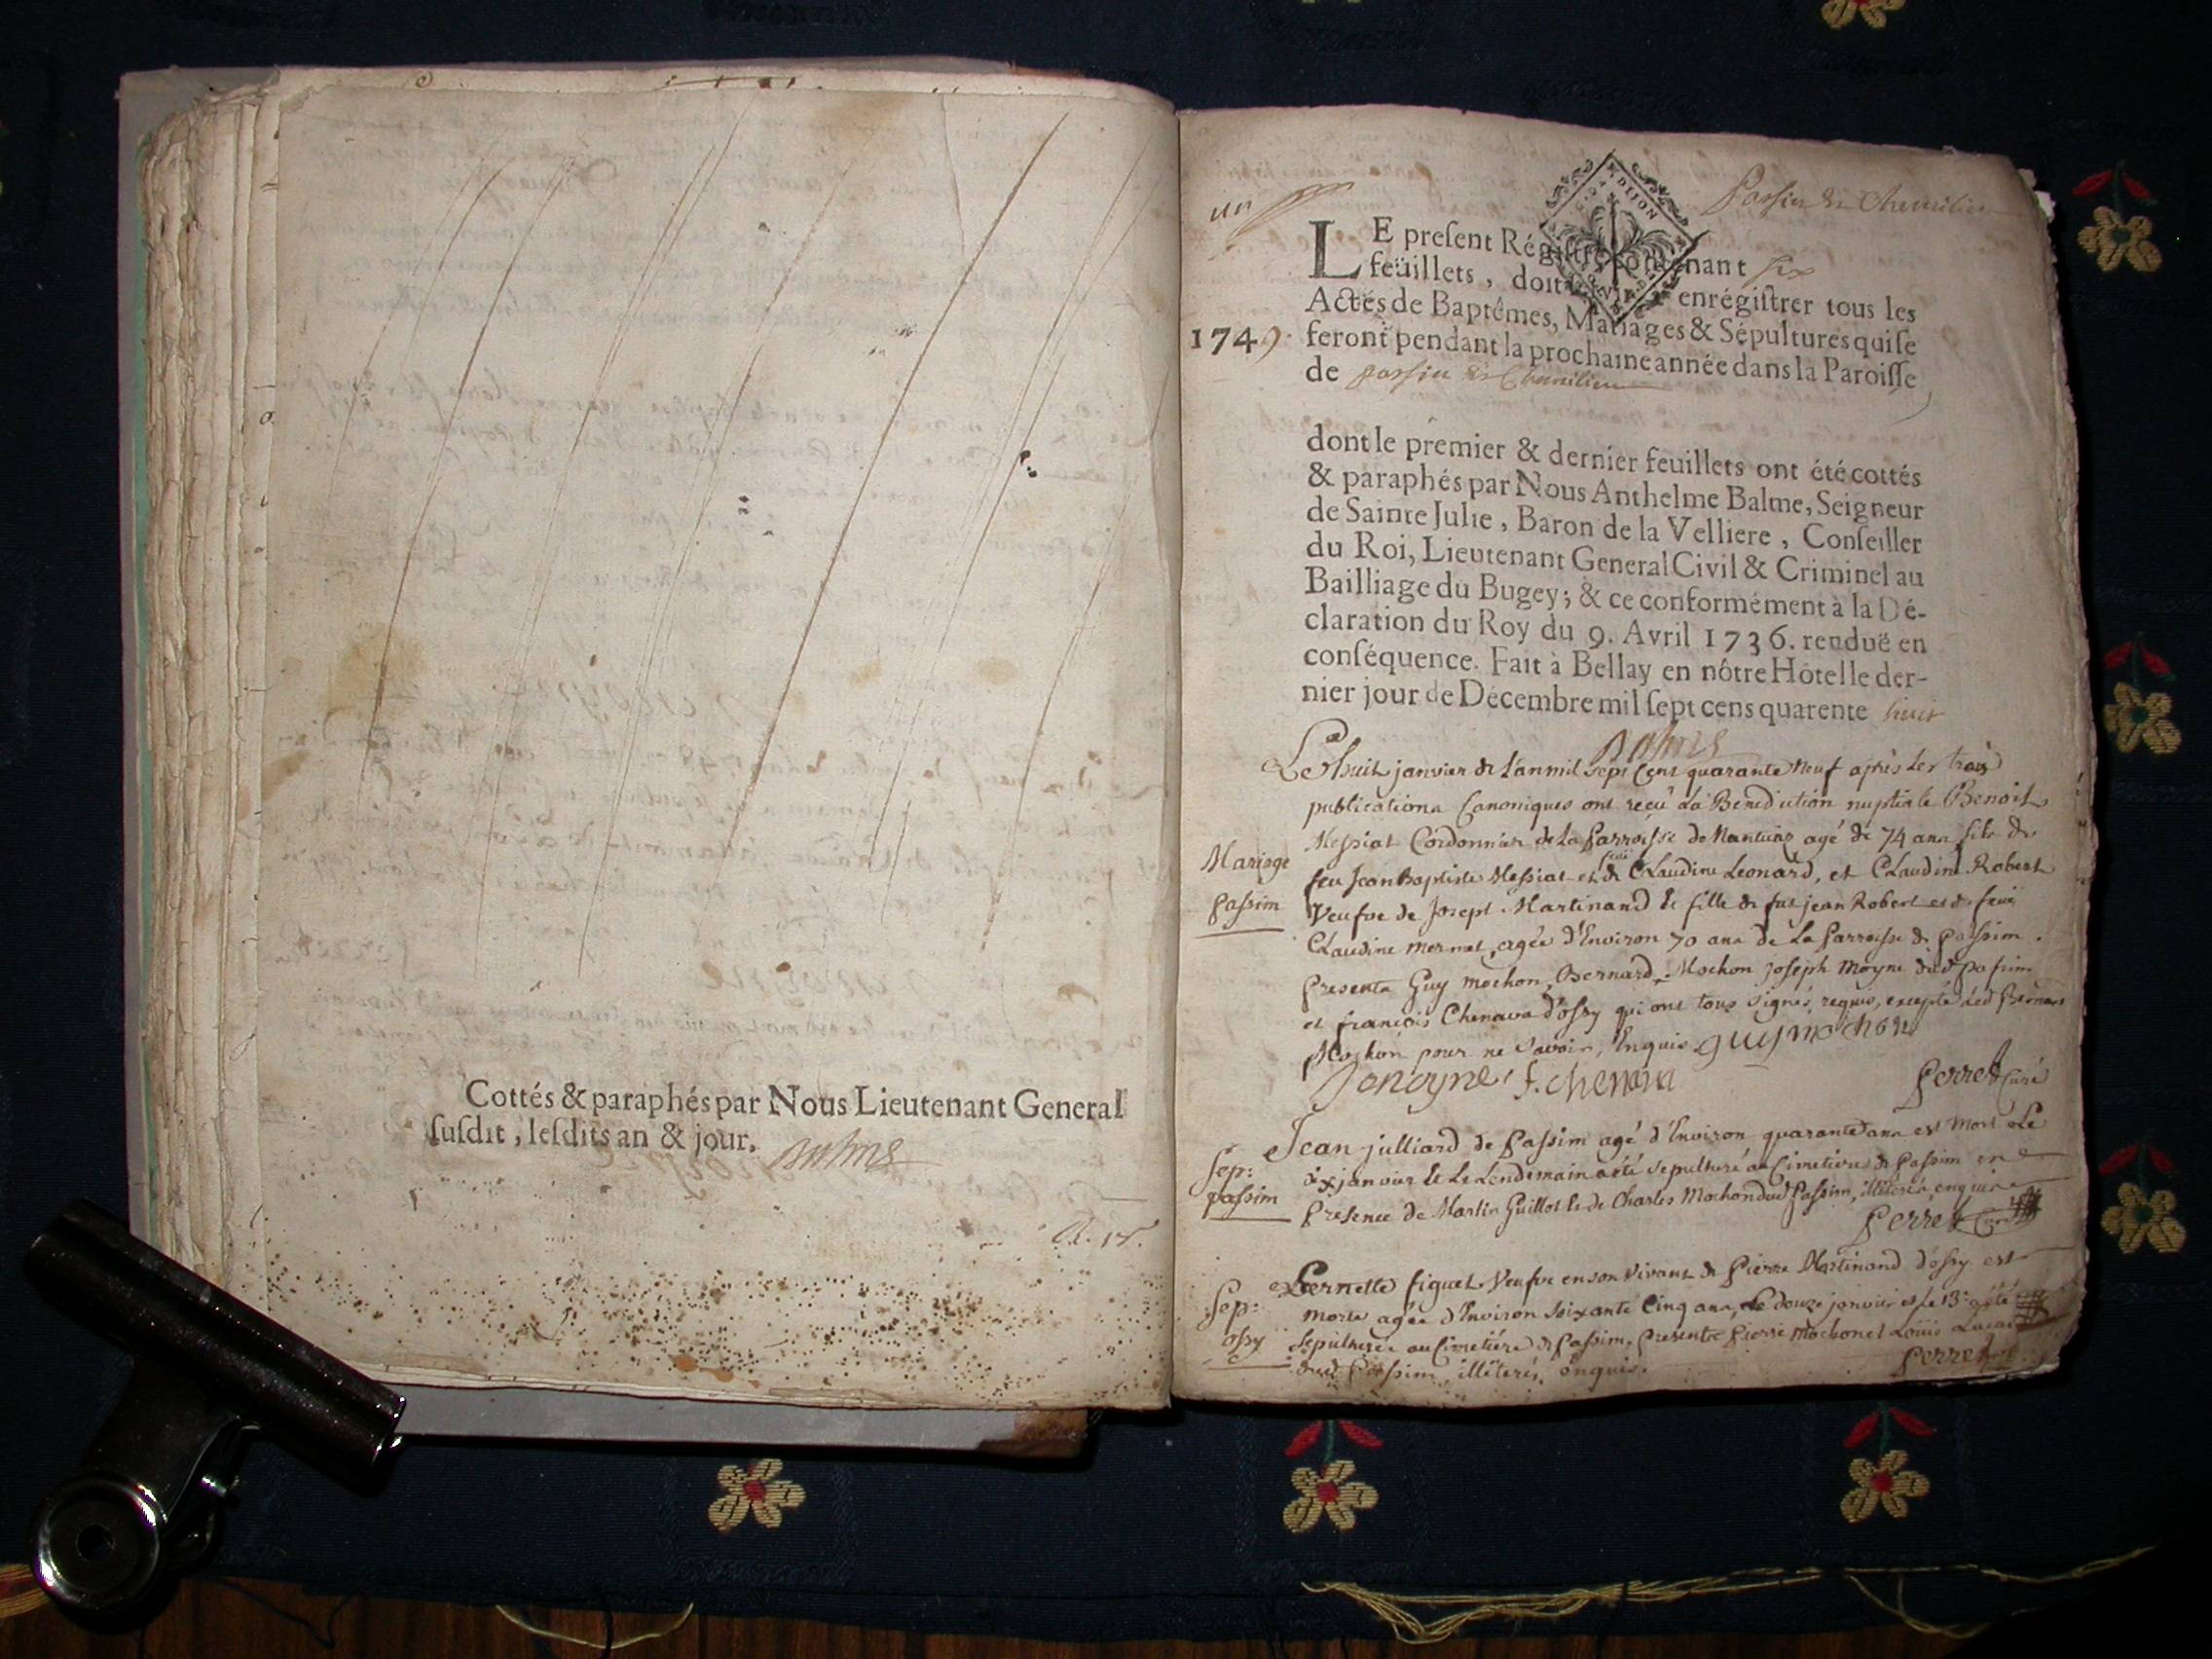 Cottés & paraphés par Nous Lieutenant General
ſuſdit, leſdits an & jour.
Balme
un
Passin & Chemilieu
LE preſent Régiſtre contenant ſix
feüillets, doit enrégiſtrer tous les
Actes de Baptêmes, Mariages & Sépultures qui ſe
1749. feront pendant la prochaine année dans la Paroiſſe
de passin & Chemilieu
dont le premier & dernier feuillets ont été cottés
& paraphés par Nous Anthelme Balme, Seigneur
de Sainte Julie, Baron de la Velliere, Conſeiller
du Roi, Lieutenant General Civil & Criminel au
Bailliage du Bugey; & ce conformément à la Dé-
claration du Roy du 9. Avril 1736. renduë en
conſéquence. Fait à Bellay en nôtre Hôtel le der-
nier jour de Décembre mil ſept cens quarente huit
Balme
Le huit janvier de l'an mil sept Cent quarante Neuf après les trois
publications Canoniques ont reçu La Benediction nuptiale Benoit
Messiat Cordonnier de La Parroisse de Nantua agé de 74 ans fils de
Mariage
passim
feu Jean Baptiste Messiat et de feüe Claudine Leonard, et Claudine Robert
Veufve de Joseph Martinand & fille de fut jean Robert et de feüe
Claudine mermet, agée d'Environ 70 ans de La Parroisse de passim.
Presents Guy mochon, Bernard Mochon joseph moyne dud passim
et francois Chenava d'ossy qui ont tous signés, requis, excepté Led Bernard
Mochon pour ne Savoir, Enquis guy mochon
J moyne f. chenava Perret Curé
Jean julliard de Passim agé d'Environ quarante ans est mort Le
Sep:
passim
dix janvier & Le Lendemain a été sepulturé au Cimetiere de Passim en
Presence de Martin Guillot & de Charles Mochon dud Passim, illiterés, enquis
Perret Curé
Pernette figuet Veufve en son Vivant de Pierre Martinand d'ossy est
Sep:
ossy
morte agée d'Environ soixante Cinq ans, Le douze janvier et le 13e a été
sepulturée au Cimetiére de Passim. Presents Pierre Mochon et Loüis
dud Passim, illiterés, enquis.
Perret